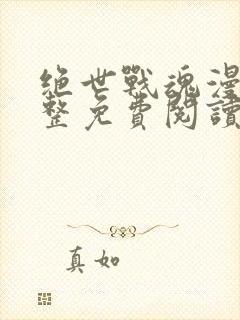 絕世戰魂漫
整免費閱讀
真如